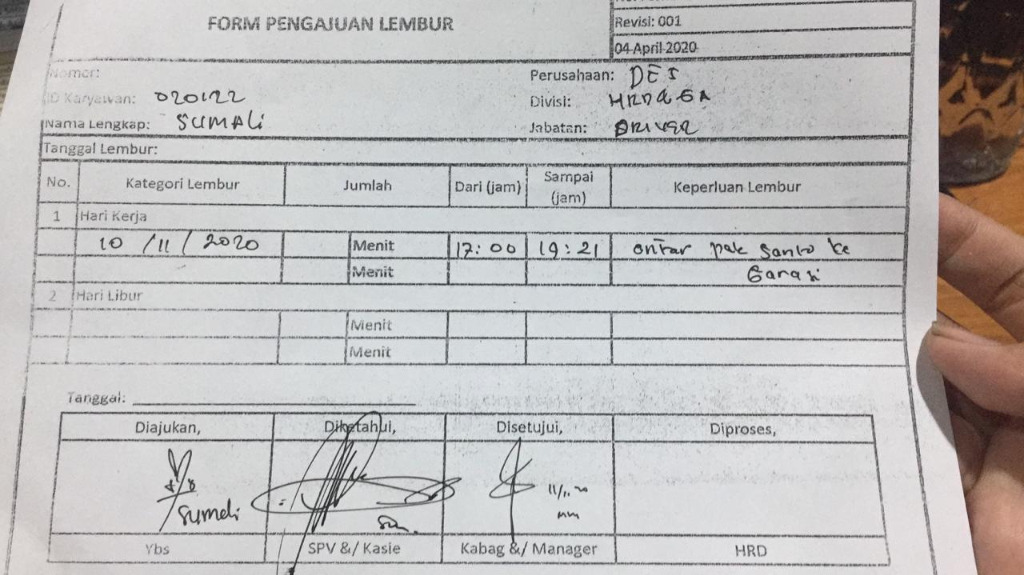 FORM PENGAJUAN LEMBUR
Revisi: 001
04 April 2020
Nomor:
Perusahaan: DES
ID Karyawan: 020122
Divisi: HRD & GA
Nama Lengkap: SUMALi
Jabatan: DRIVER
Tanggal Lembur:
No. Kategori Lembur Jumlah Dari (jam) Sampai (jam) Keperluan Lembur
1 Hari Kerja
10 / 11 / 2020 Menit 17:00 19:21 antar pak Santo ke
Menit Garasi
2 Hari Libur
Menit
Menit
Tanggal:
Diajukan, Diketahui, Disetujui, Diproses,
Sumali
11/11.20
Ybs SPV &/ Kasie Kabag &/ Manager HRD